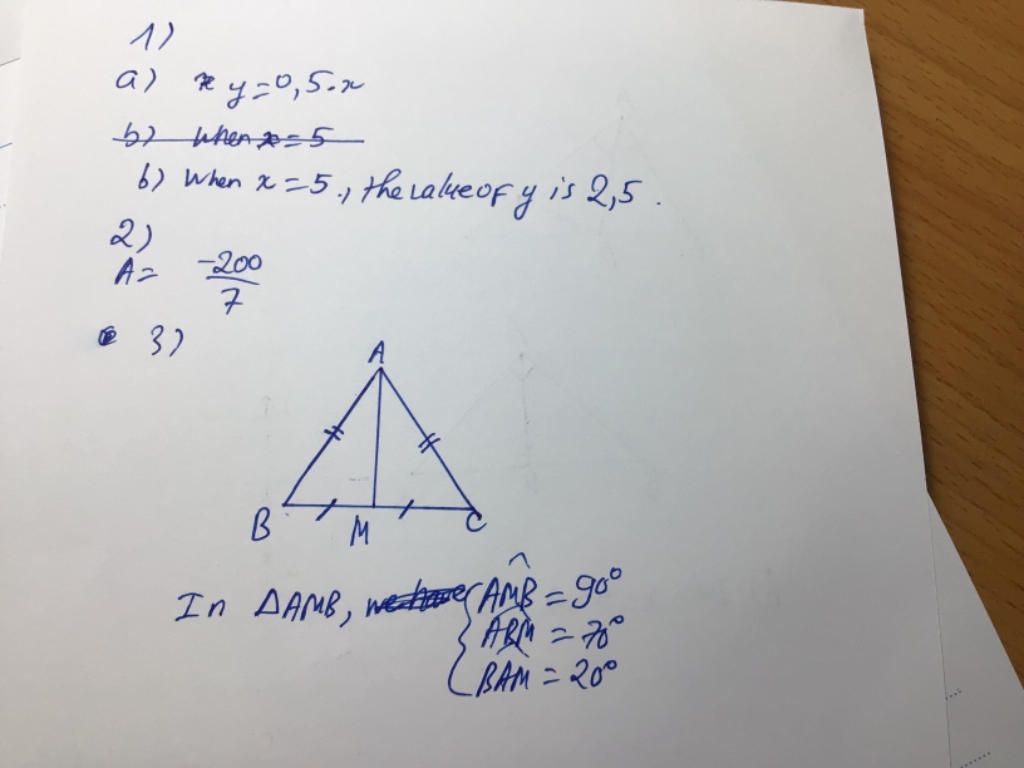 1)
a) y=0,5.x
b) When x=5
b) When x=5., the value of y is 2,5.
2)
A= -200/7
3)
A
B M C
In ΔAMB, we have { AMB̂ = 90°
ABM̂ = 70°
BAM̂ = 20°